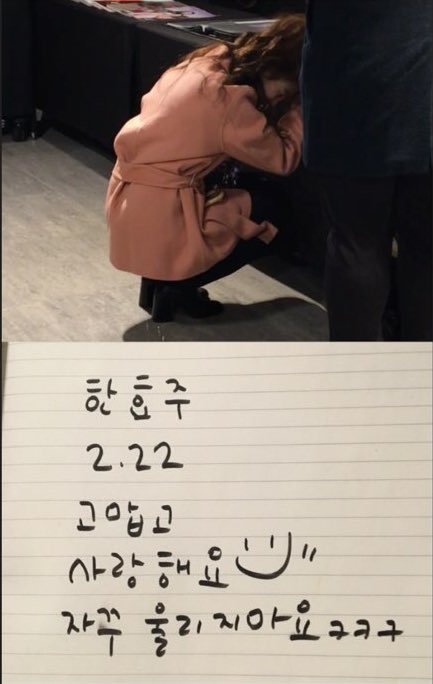 한효주
2.22
고맙고
사랑해요
자꾸 울리지마요ㅋㅋㅋ